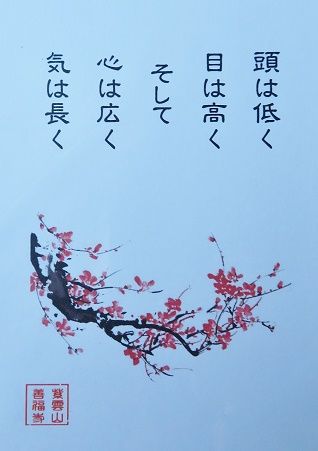 頭は低く
目は高く
そして
心は広く
気は長く
紫雲山
善福寺